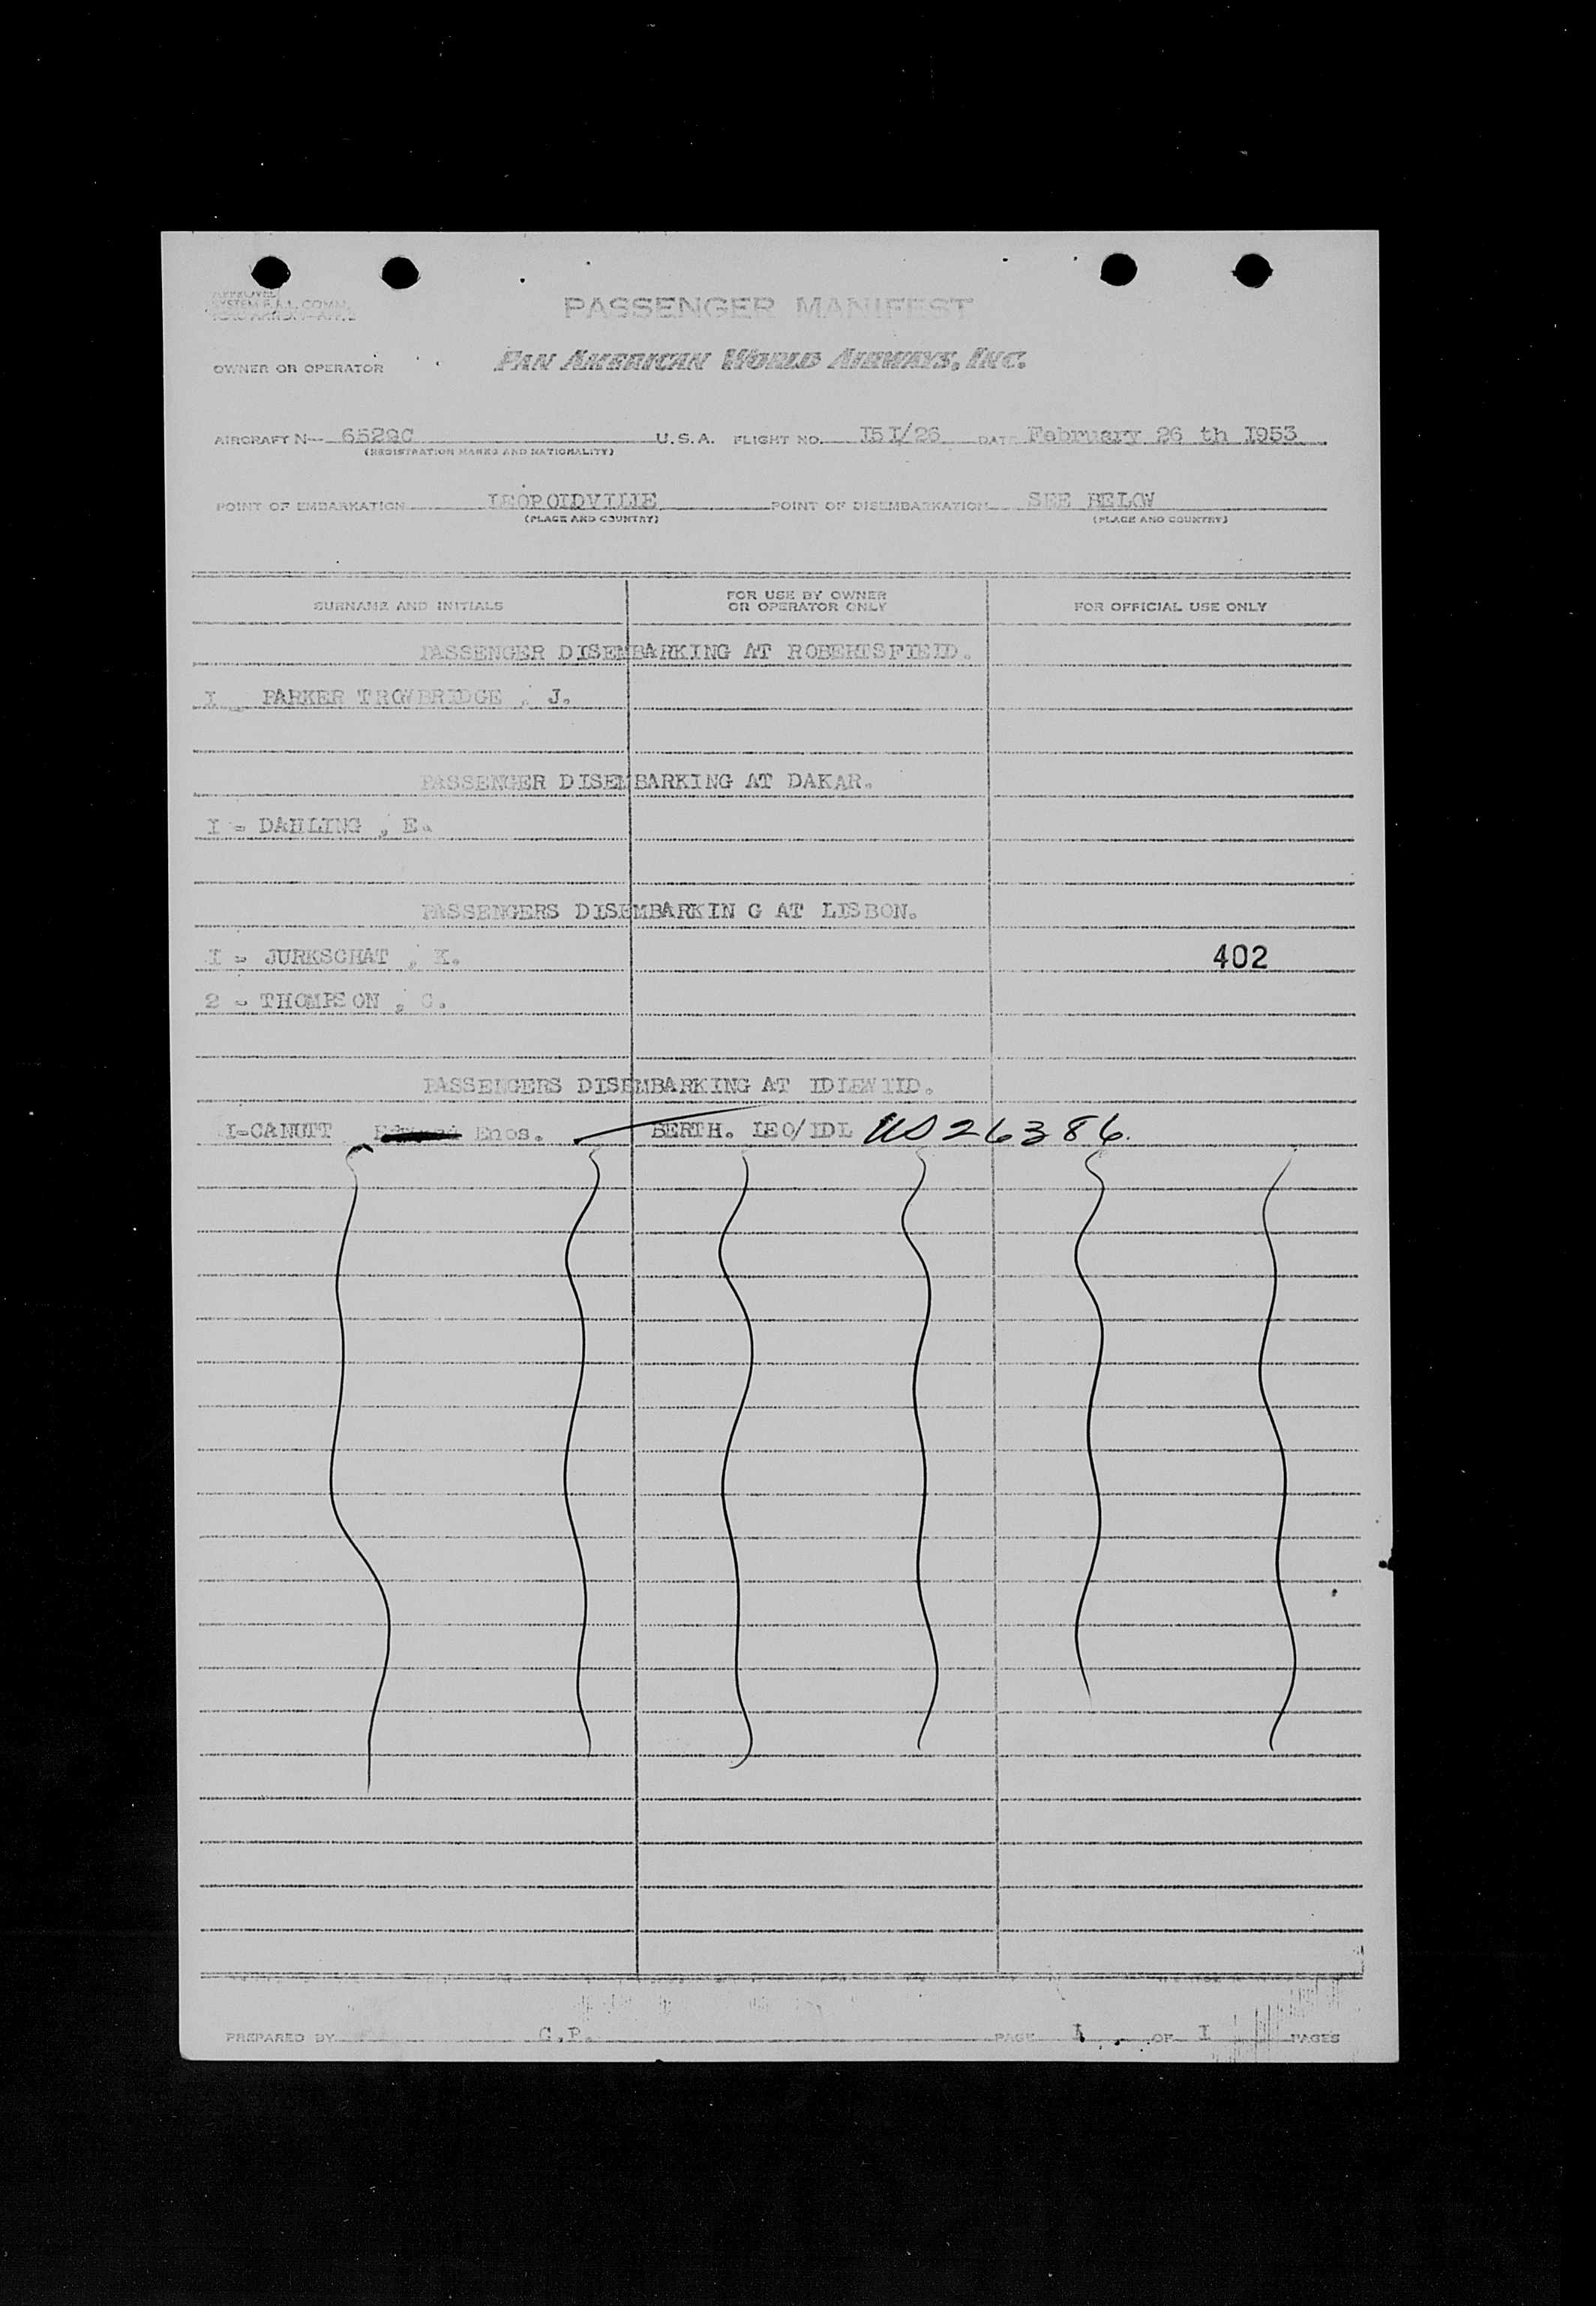 APPROVED
SYSTEM F. & L. COMM.
PASSENGER MANIFEST
OWNER OR OPERATOR PAN AMERICAN WORLD AIRWAYS, INC.
AIRCRAFT N— 6529C U.S.A. FLIGHT NO. I5I/26 DATE February 26 th I953
(REGISTRATION MARKS AND NATIONALITY)
POINT OF EMBARKATION LEOPOLDVILLE POINT OF DISEMBARKATION SEE BELOW
(PLACE AND COUNTRY) (PLACE AND COUNTRY)
SURNAME AND INITIALS FOR USE BY OWNER OR OPERATOR ONLY FOR OFFICIAL USE ONLY
PASSENGER DISEMBARKING AT ROBERTSFIELD.
I - PARKER TROWBRIDGE , J.
PASSENGER DISEMBARKING AT DAKAR.
I - DAHLING , E.
PASSENGERS DISEMBARKIN G AT LISBON.
I - JURKSCHAT , K. 402
2 - THOMPSON , C.
PASSENGERS DISEMBARKING AT IDLEWILD.
I-CANUTT Enos. BERTH. LEO/IDL US 26386.
PREPARED BY G.P. PAGE I OF I PAGES